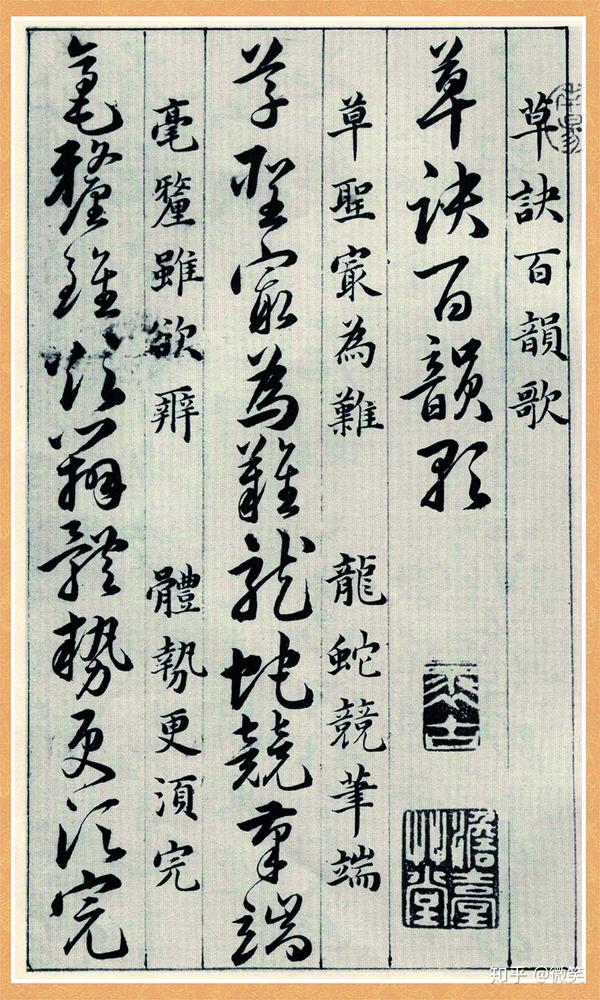 草訣百韻歌
草訣百韻歌
草聖㝡為難 龍蛇競筆端
草聖㝡為難龍蛇競筆端
毫釐雖欲辨 體勢更須完
毫釐雖欲辨體勢更須完
知乎 @微笑